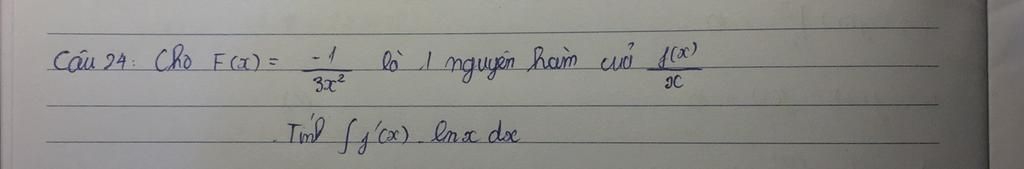 Câu 24: Cho F(x) = -1/3x² là 1 nguyên hàm của f(x)/x
Tính ∫f'(x).lnx dx